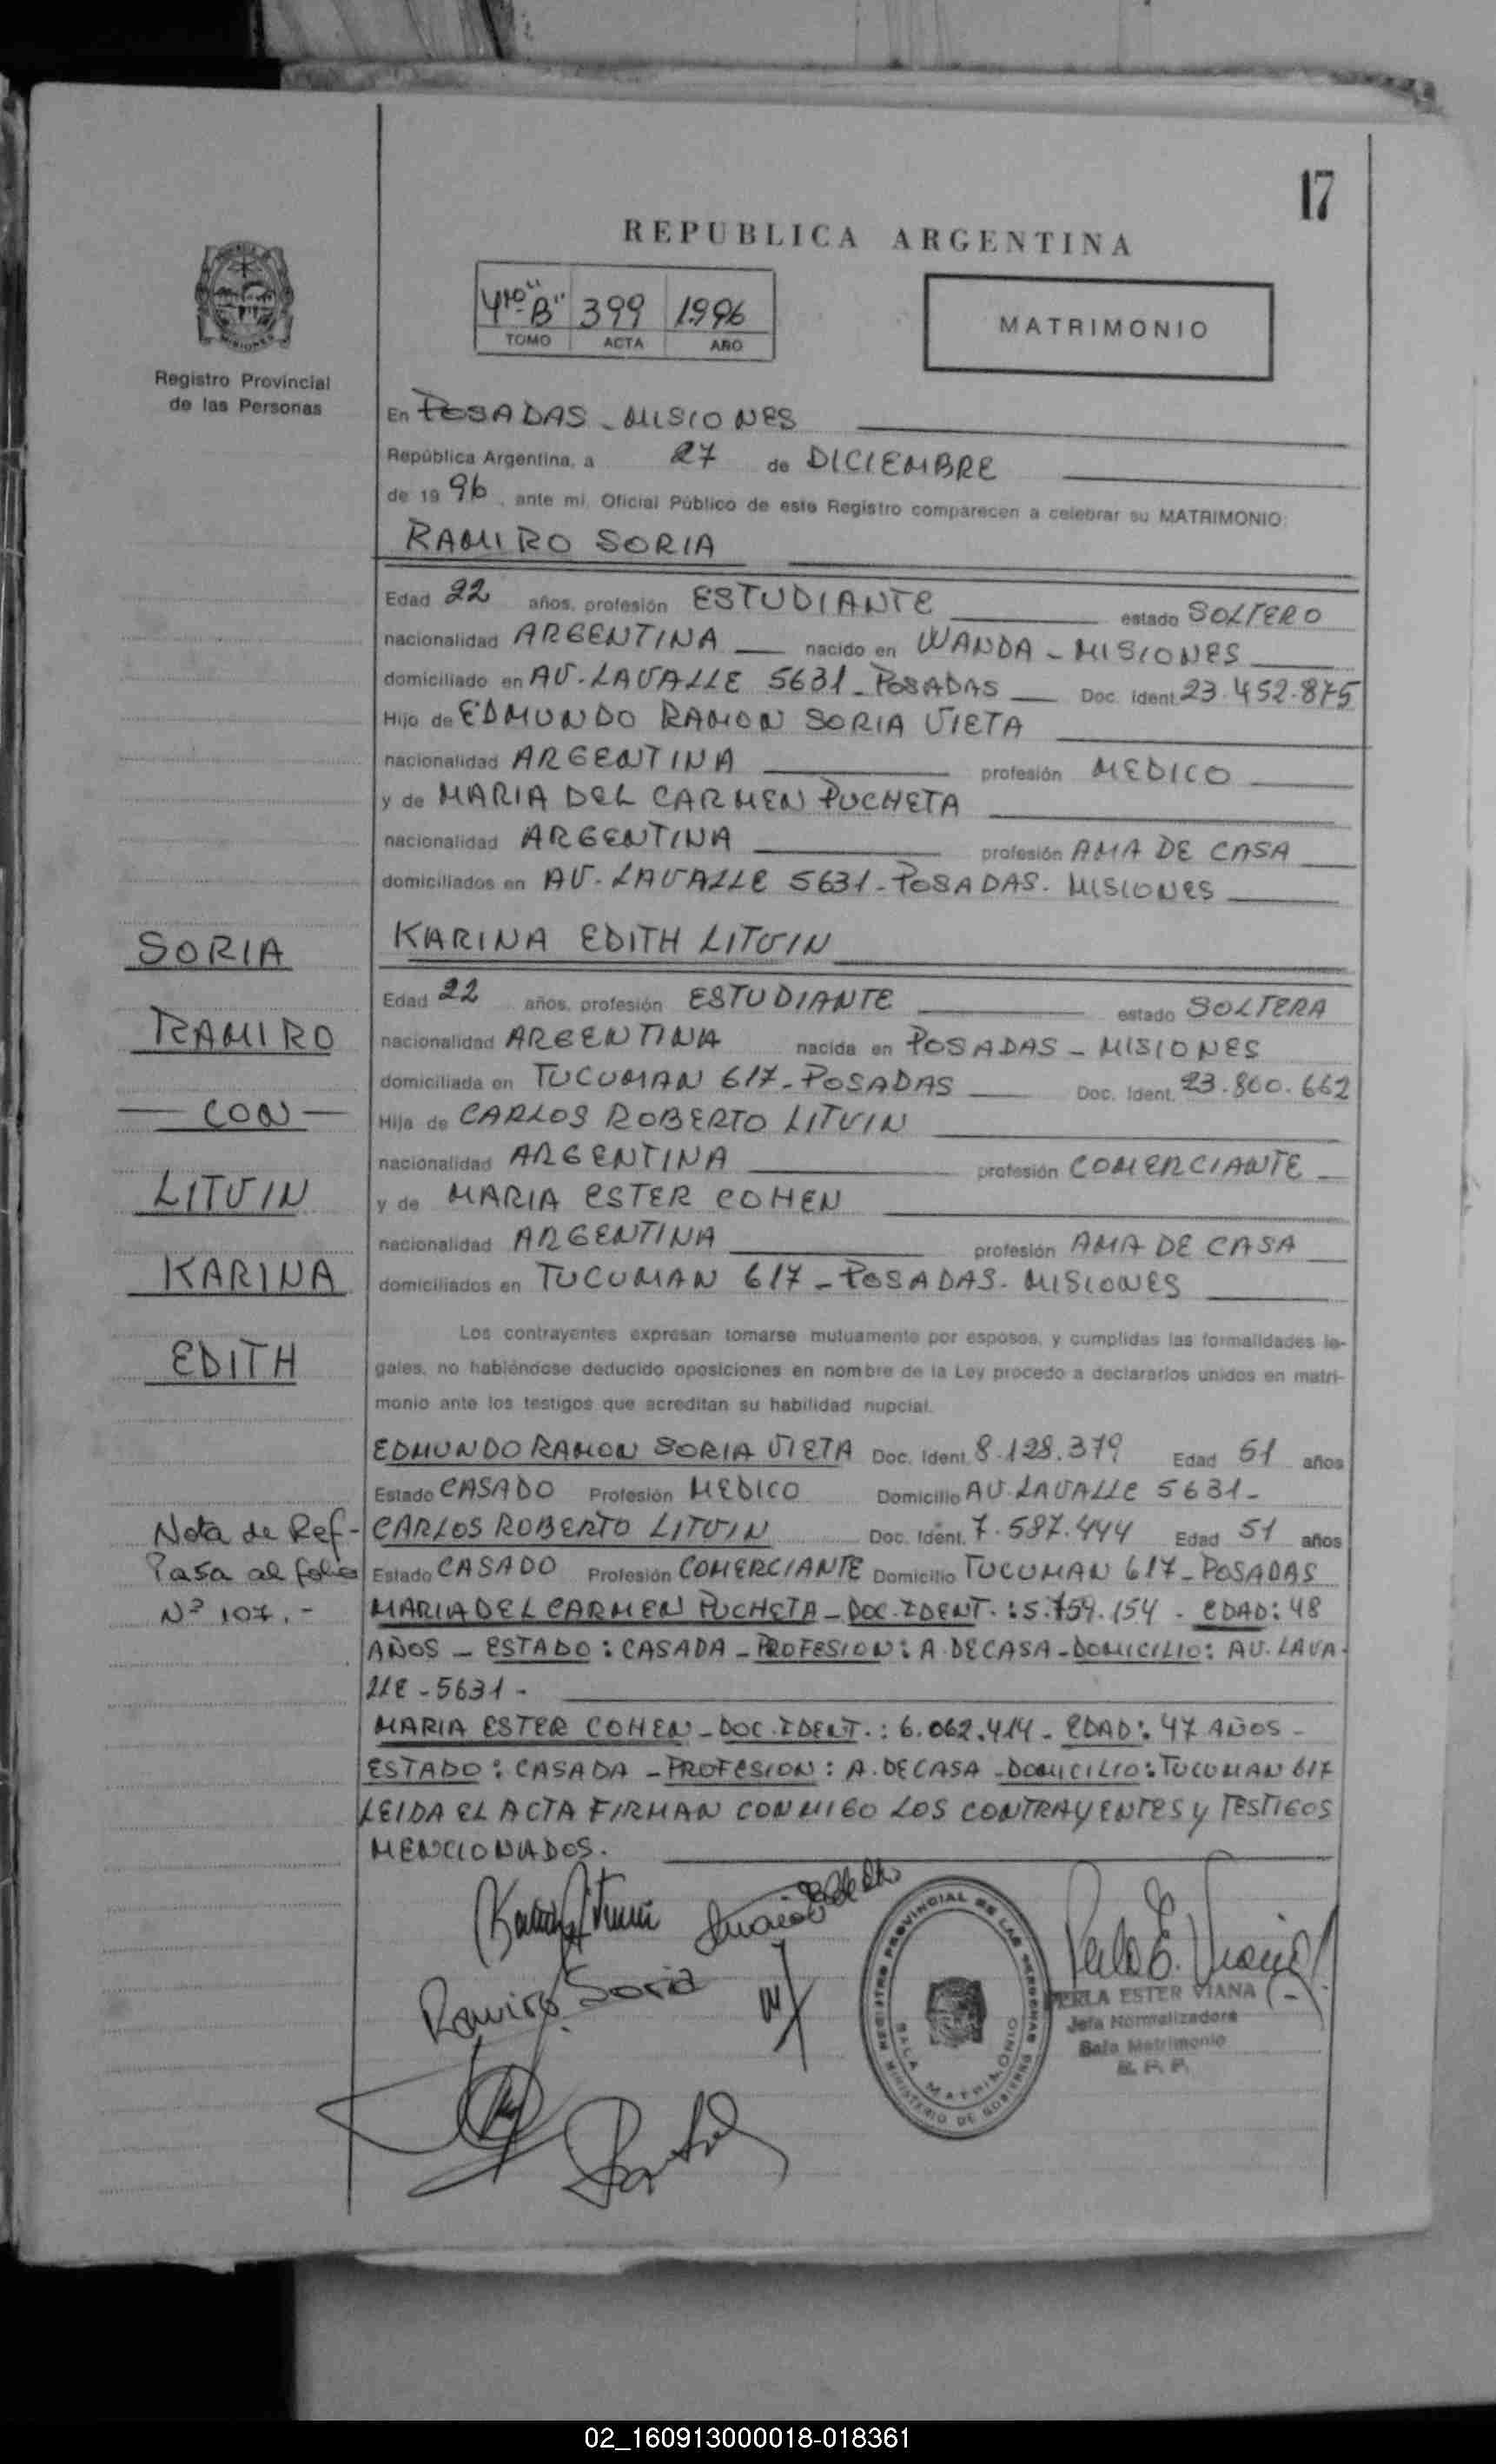 17
REPUBLICA ARGENTINA
4to "B" 399 1996
TOMO ACTA AÑO
MATRIMONIO
Registro Provincial
de las Personas
En POSADAS - MISIONES
República Argentina, a 27 de DICIEMBRE
de 1996, ante mi, Oficial Público de este Registro comparecen a celebrar su MATRIMONIO:
RAMIRO SORIA
Edad 22 años, profesión ESTUDIANTE estado SOLTERO
nacionalidad ARGENTINA nacido en WANDA - MISIONES
domiciliado en AV. LAVALLE 5631 - POSADAS Doc. Ident. 23.452.875
Hijo de EDMUNDO RAMON SORIA VIETA
nacionalidad ARGENTINA profesión MEDICO
y de MARIA DEL CARMEN PUCHETA
nacionalidad ARGENTINA profesión AMA DE CASA
domiciliados en AV. LAVALLE 5631 - POSADAS - MISIONES
KARINA EDITH LITVIN
Edad 22 años, profesión ESTUDIANTE estado SOLTERA
nacionalidad ARGENTINA nacida en POSADAS - MISIONES
domiciliada en TUCUMAN 617 - POSADAS Doc. Ident. 23.800.662
Hija de CARLOS ROBERTO LITVIN
nacionalidad ARGENTINA profesión COMERCIANTE
y de MARIA ESTER COHEN
nacionalidad ARGENTINA profesión AMA DE CASA
domiciliados en TUCUMAN 617 - POSADAS - MISIONES
SORIA
RAMIRO
— CON —
LITVIN
KARINA
EDITH
Los contrayentes expresan tomarse mutuamente por esposos, y cumplidas las formalidades le-
gales, no habiéndose deducido oposiciones en nombre de la Ley procedo a declararlos unidos en matri-
monio ante los testigos que acreditan su habilidad nupcial.
EDMUNDO RAMON SORIA VIETA Doc. Ident. 8.128.379 Edad 51 años
Estado CASADO Profesión MEDICO Domicilio AV. LAVALLE 5631 -
CARLOS ROBERTO LITVIN Doc. Ident. 7.587.444 Edad 51 años
Estado CASADO Profesión COMERCIANTE Domicilio TUCUMAN 617 - POSADAS
MARIA DEL CARMEN PUCHETA - DOC. IDENT. : 5.759.154 - EDAD: 48
AÑOS - ESTADO : CASADA - PROFESION : A. DE CASA - DOMICILIO: AV. LAVA-
LLE - 5631 -
MARIA ESTER COHEN - DOC. IDENT. : 6.062.414 - EDAD: 47 AÑOS -
ESTADO : CASADA - PROFESION : A. DE CASA - DOMICILIO: TUCUMAN 617
LEIDA EL ACTA FIRMAN CONMIGO LOS CONTRAYENTES Y TESTIGOS
MENCIONADOS.
Nota de Ref-
Pasa al folio
Nº 107.-
Ramiro Soria
REGISTRO PROVINCIAL DE LAS PERSONAS
MINISTERIO DE GOBIERNO
SALA MATRIMONIO
Perla E. Viana
PERLA ESTER VIANA
Jefa Normalizadora
Sala Matrimonio
R. P. P.
02_160913000018-018361